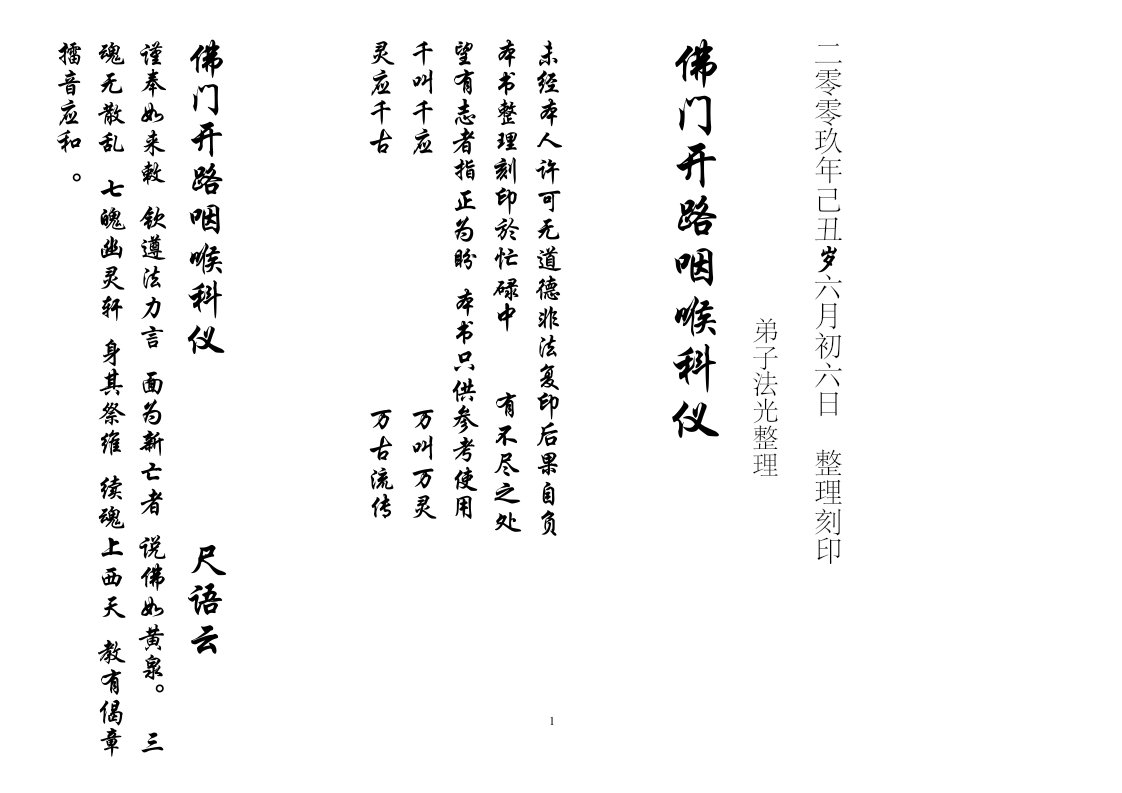 二零零玖年己丑岁六月初六日 整理刻印
弟子法光整理
佛门开路咽喉科仪
未经本人许可无道德非法复印后果自负
本书整理刻印於忙碌中 有不尽之处
望有志者指正为盼 本书只供参考使用
千叫千应 万叫万灵
灵应千古 万古流传
1
佛门开路咽喉科仪 尺语云
谨奉如来敕 钦遵法力言 面为新亡者 说佛如黄泉。 三
魂无散乱 七魄幽灵轩 身其祭维 续魂上西天 教有偈章
擂音应和。